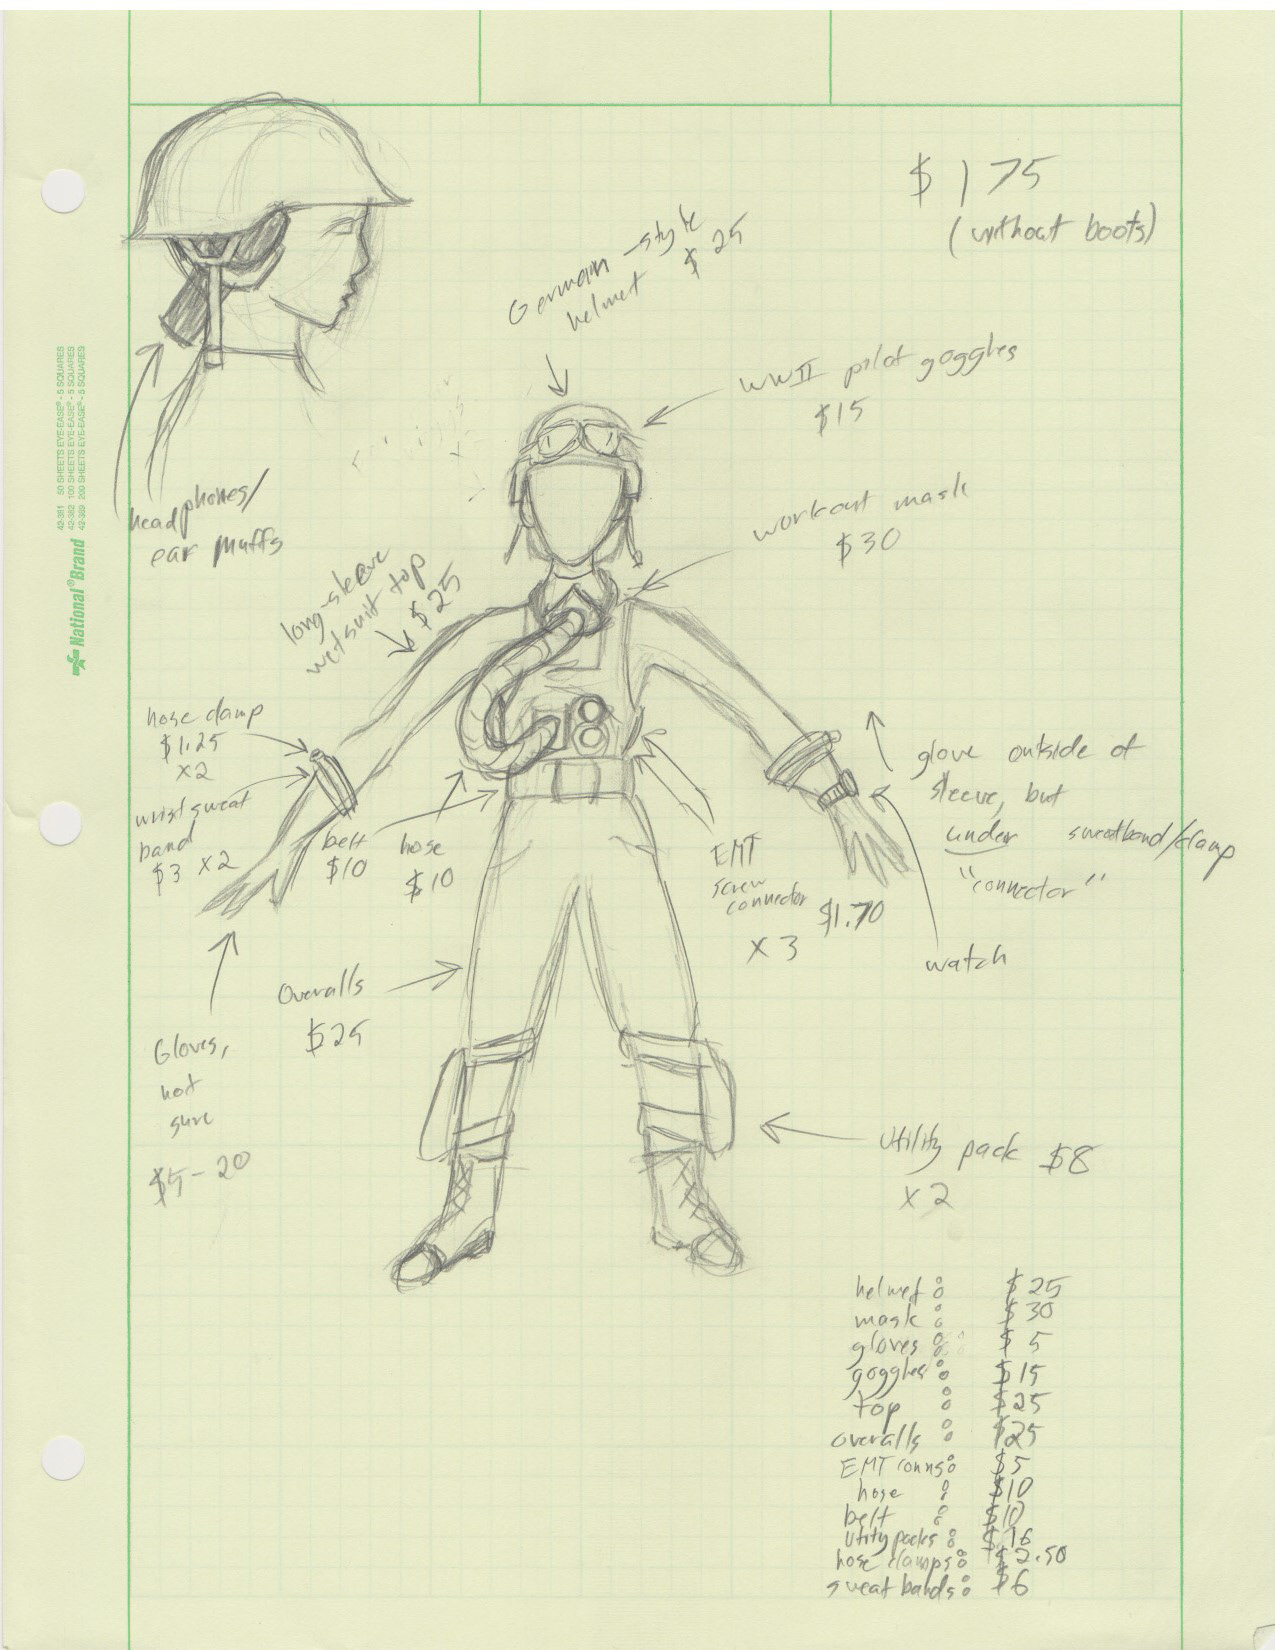 $175
(without boots)
German-style
helmet $25
WWII pilot goggles
$15
workout mask
$30
headphones/
ear muffs
long-sleeve
wetsuit top
$25
hose clamp
$1.25
x2
wrist sweat
band
$3 x2
belt
$10
hose
$10
EMT
screw
connector $1.70
x3
glove outside of
sleeve, but
under sweatband/clamp
"connector"
watch
Overalls
$25
Gloves,
not
sure
$5-20
Utility pack $8
x2
helmet: $25
mask: $30
gloves: $5
goggles: $15
top: $25
overalls: $25
EMT conns: $5
hose: $10
belt: $10
utility packs: $16
hose clamps: $2.50
sweat bands: $6
42-381 50 SHEETS EYE-EASE® - 5 SQUARES
42-382 100 SHEETS EYE-EASE® - 5 SQUARES
42-389 200 SHEETS EYE-EASE® - 5 SQUARES
National® Brand